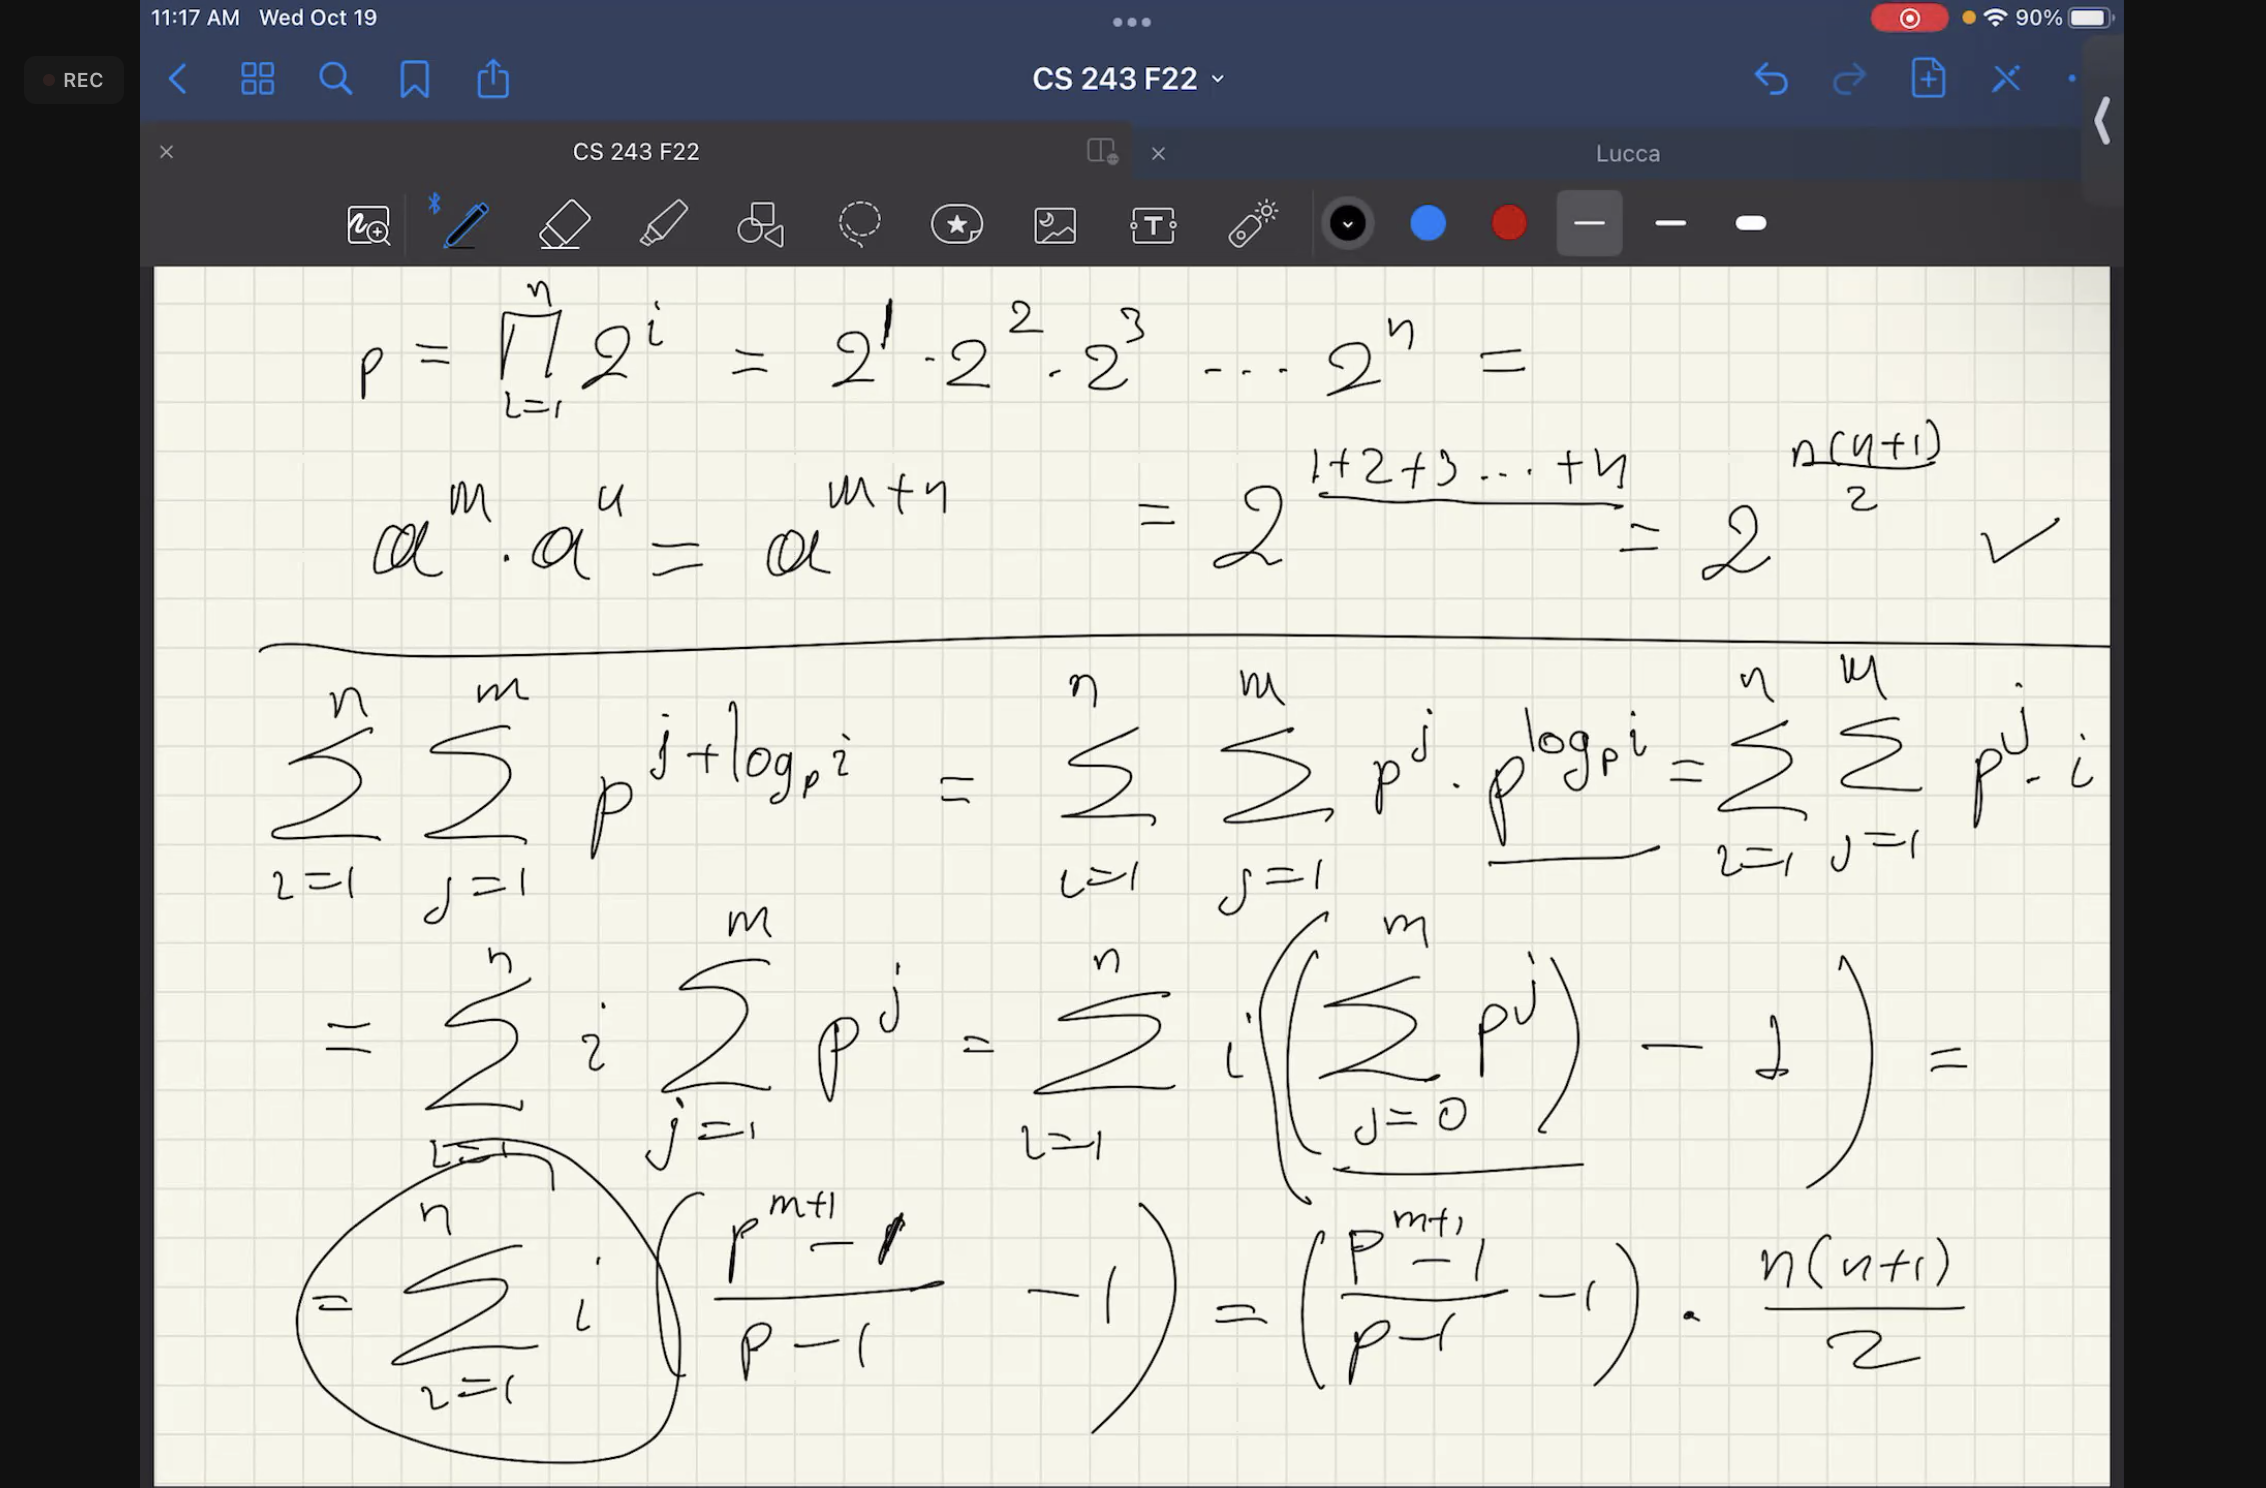 11:17 AM Wed Oct 19
90%
REC
CS 243 F22
CS 243 F22
Lucca
T
p = ∏_{i=1}^{n} 2^i = 2^1 · 2^2 · 2^3 ... 2^n =
a^m · a^n = a^{m+n} = 2^{1+2+3...+n} = 2^{n(n+1)/2} ✓
∑_{i=1}^{n} ∑_{j=1}^{m} p^{j+log_p i} = ∑_{i=1}^{n} ∑_{j=1}^{m} p^j · p^{log_p i} = ∑_{i=1}^{n} ∑_{j=1}^{m} p^j · i
= ∑_{i=1}^{n} i ∑_{j=1}^{m} p^j = ∑_{i=1}^{n} i ((∑_{j=0}^{m} p^j) - 1) =
= ∑_{i=1}^{n} i ((p^{m+1} - 1)/(p - 1) - 1) = ((p^{m+1} - 1)/(p - 1) - 1) · n(n+1)/2